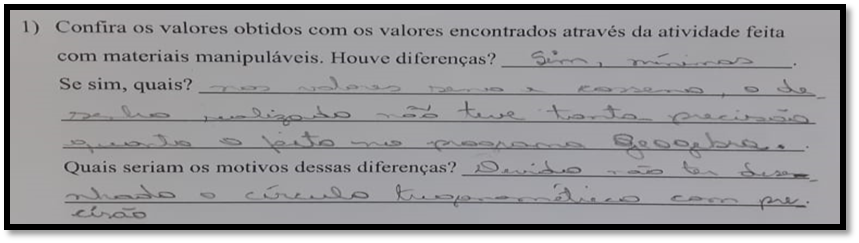 1) Confira os valores obtidos com os valores encontrados através da atividade feita
com materiais manipuláveis. Houve diferenças? Sim, mínimas.
Se sim, quais? nos valores seno e cosseno, o de-
senho realizado não teve tanta precisão
quanto o feito no programa Geogebra.
Quais seriam os motivos dessas diferenças? Devido não ter dese-
nhado o círculo trigonométrico com pre-
cisão